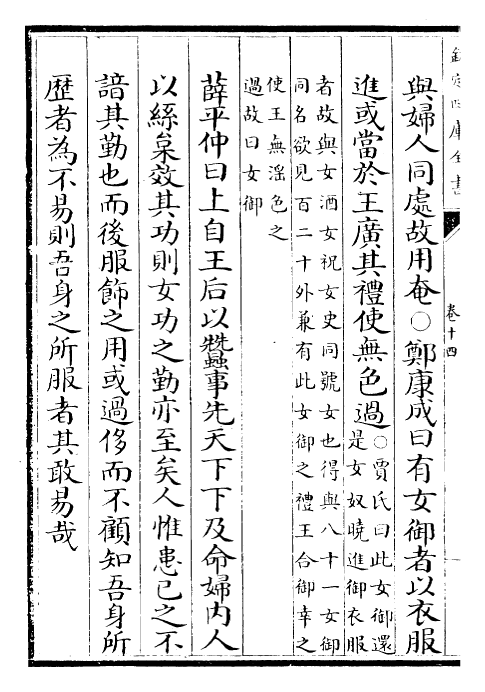 欽定四庫全書
卷十四
與婦人同處故用奄○鄭康成曰有女御者以衣服
進或當於王廣其禮使無色過○賈氏曰此女御還
是女奴曉進御衣服
者故與女酒女祝女史同號女也得與八十一女御
同名欲見百二十外兼有此女御之禮王合御幸之
使王無滛色之
過故曰女御
薛平仲曰上自王后以蠶事先天下下及命婦内人
以絲枲效其功則女功之勤亦至矣人惟患己之不
諳其勤也而後服飾之用或過侈而不顧知吾身所
歴者為不易則吾身之所服者其敢易哉